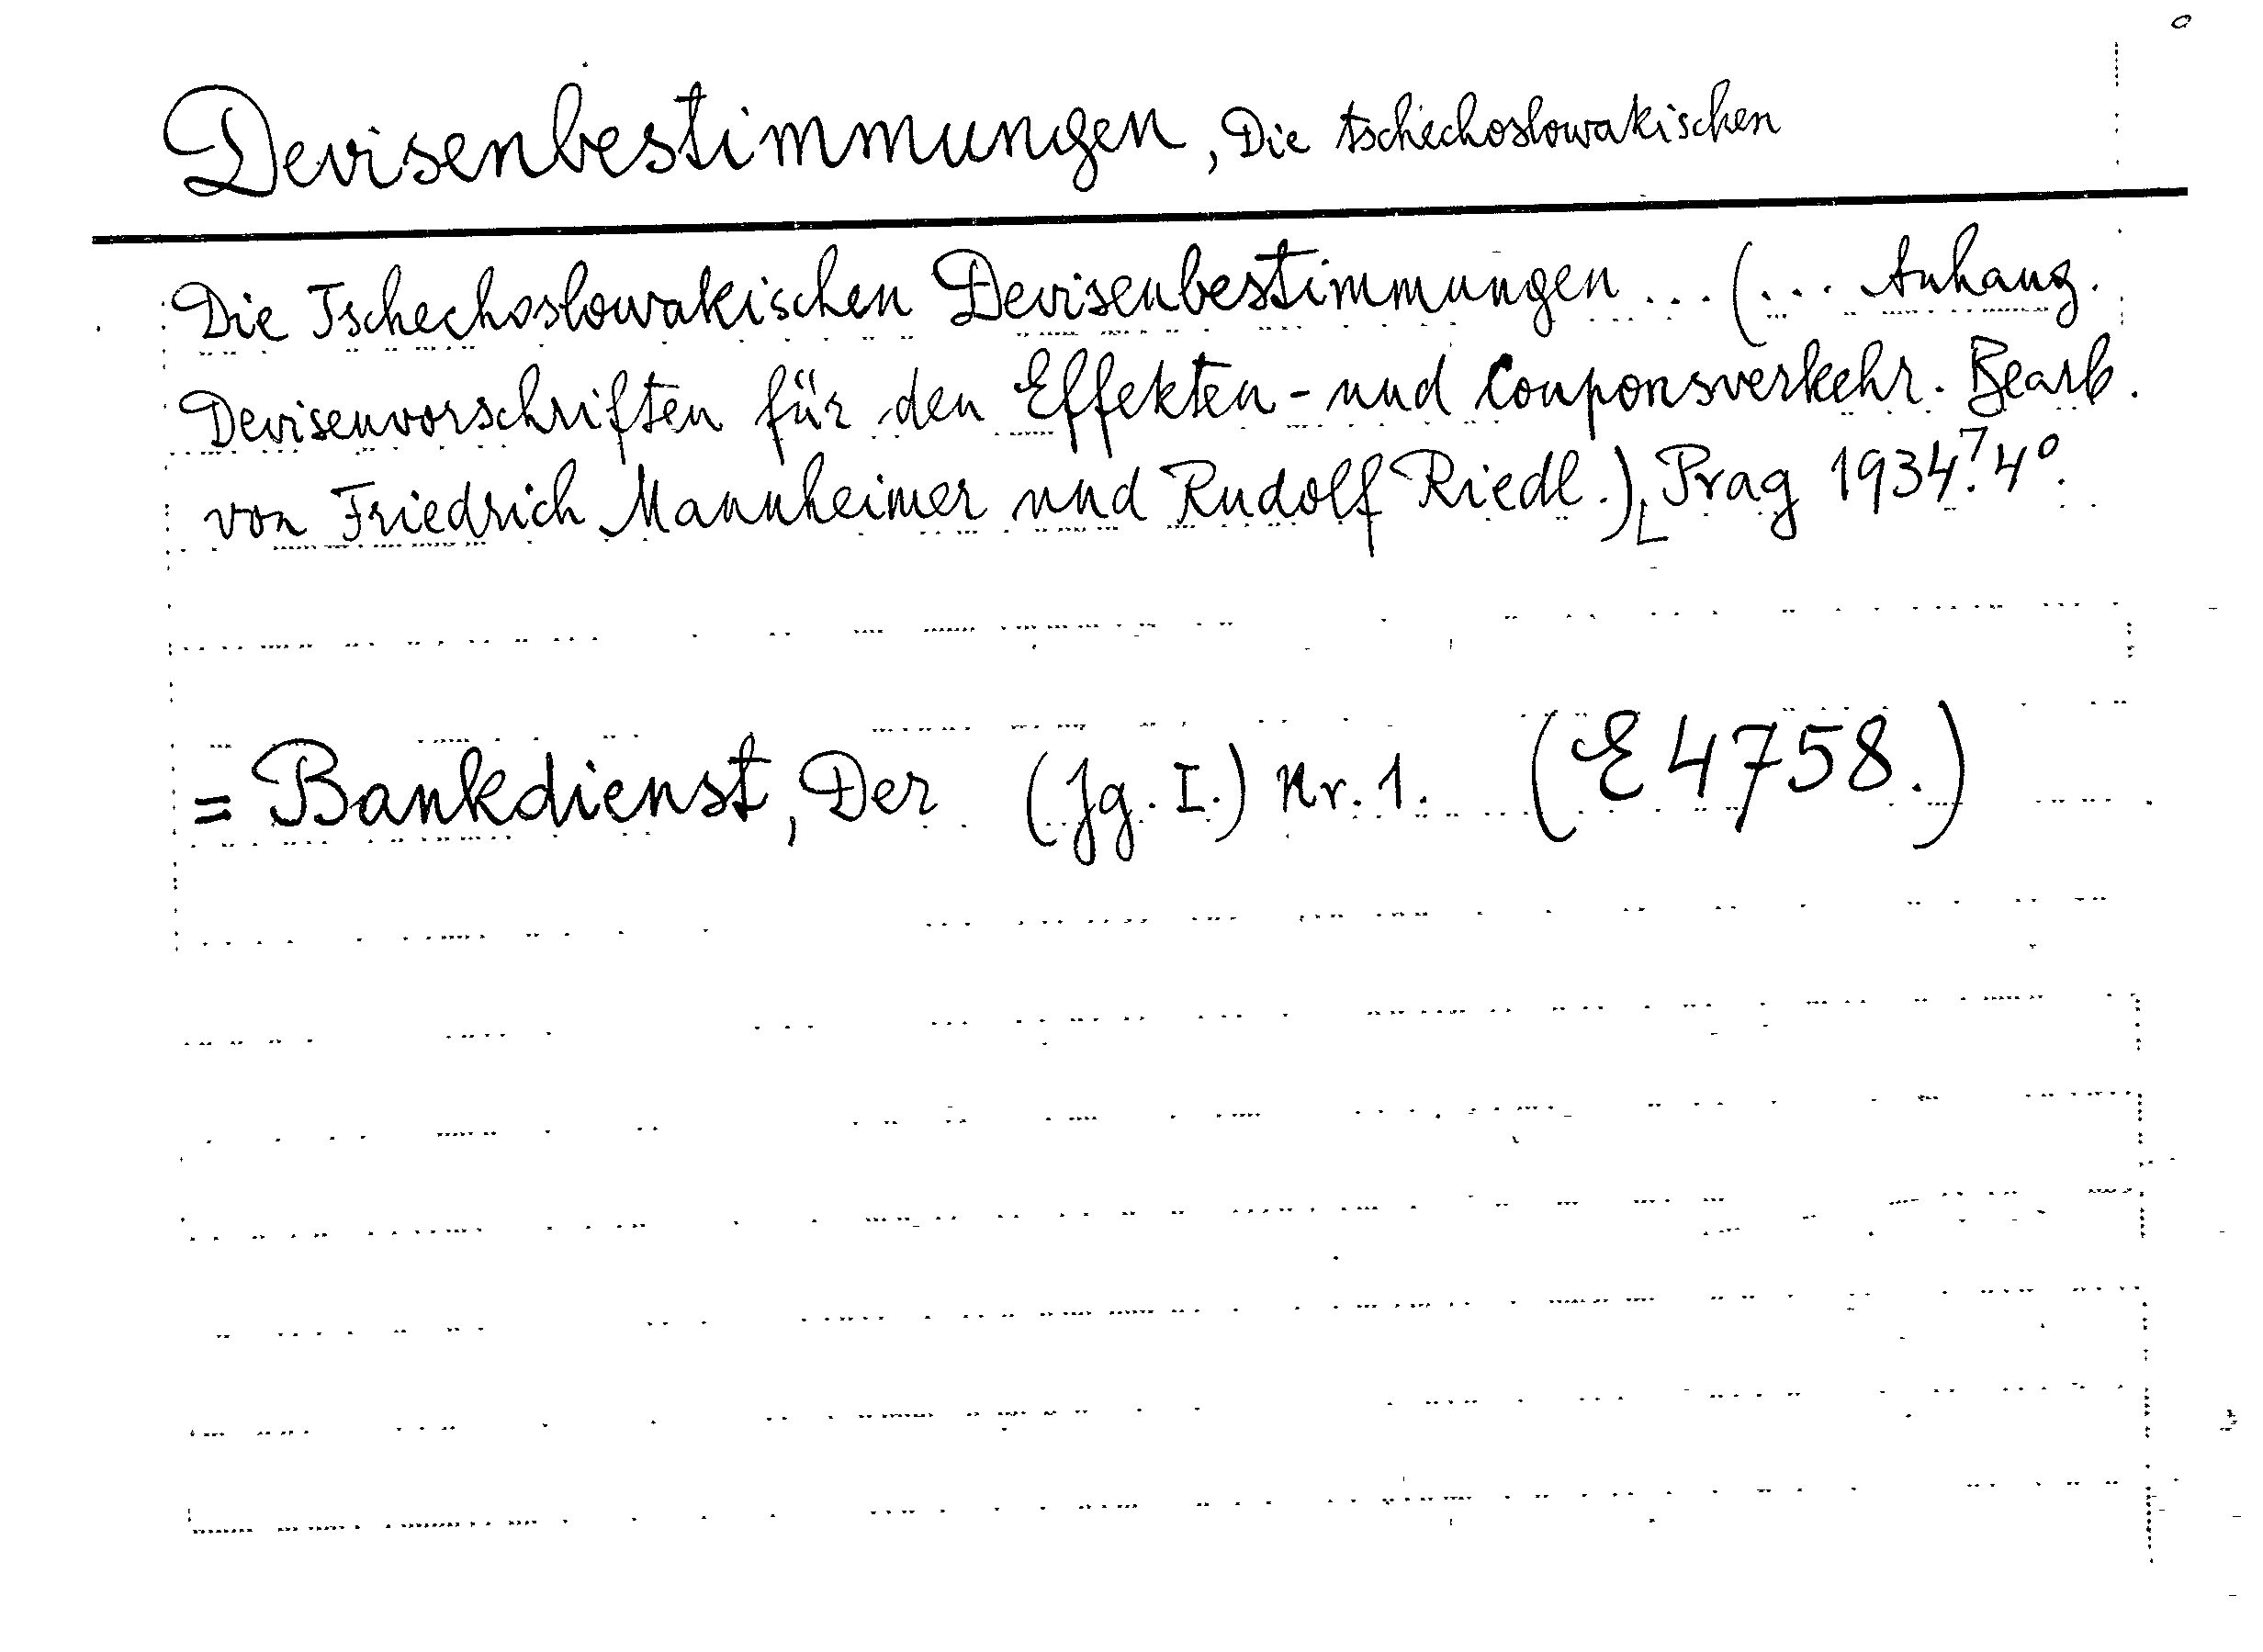 Devisenbestimmungen, Die tschechoslowakischen
Die Tschechoslowakischen Devisenbestimmungen ... (... Anhang.
Devisenvorschriften für den Effekten- und Couponsverkehr. Bearb.
von Friedrich Mannheimer und Rudolf Riedl.) [Prag 1934.] 4°.
= Bankdienst, Der (Jg. I.) Nr. 1. (E 4758.)